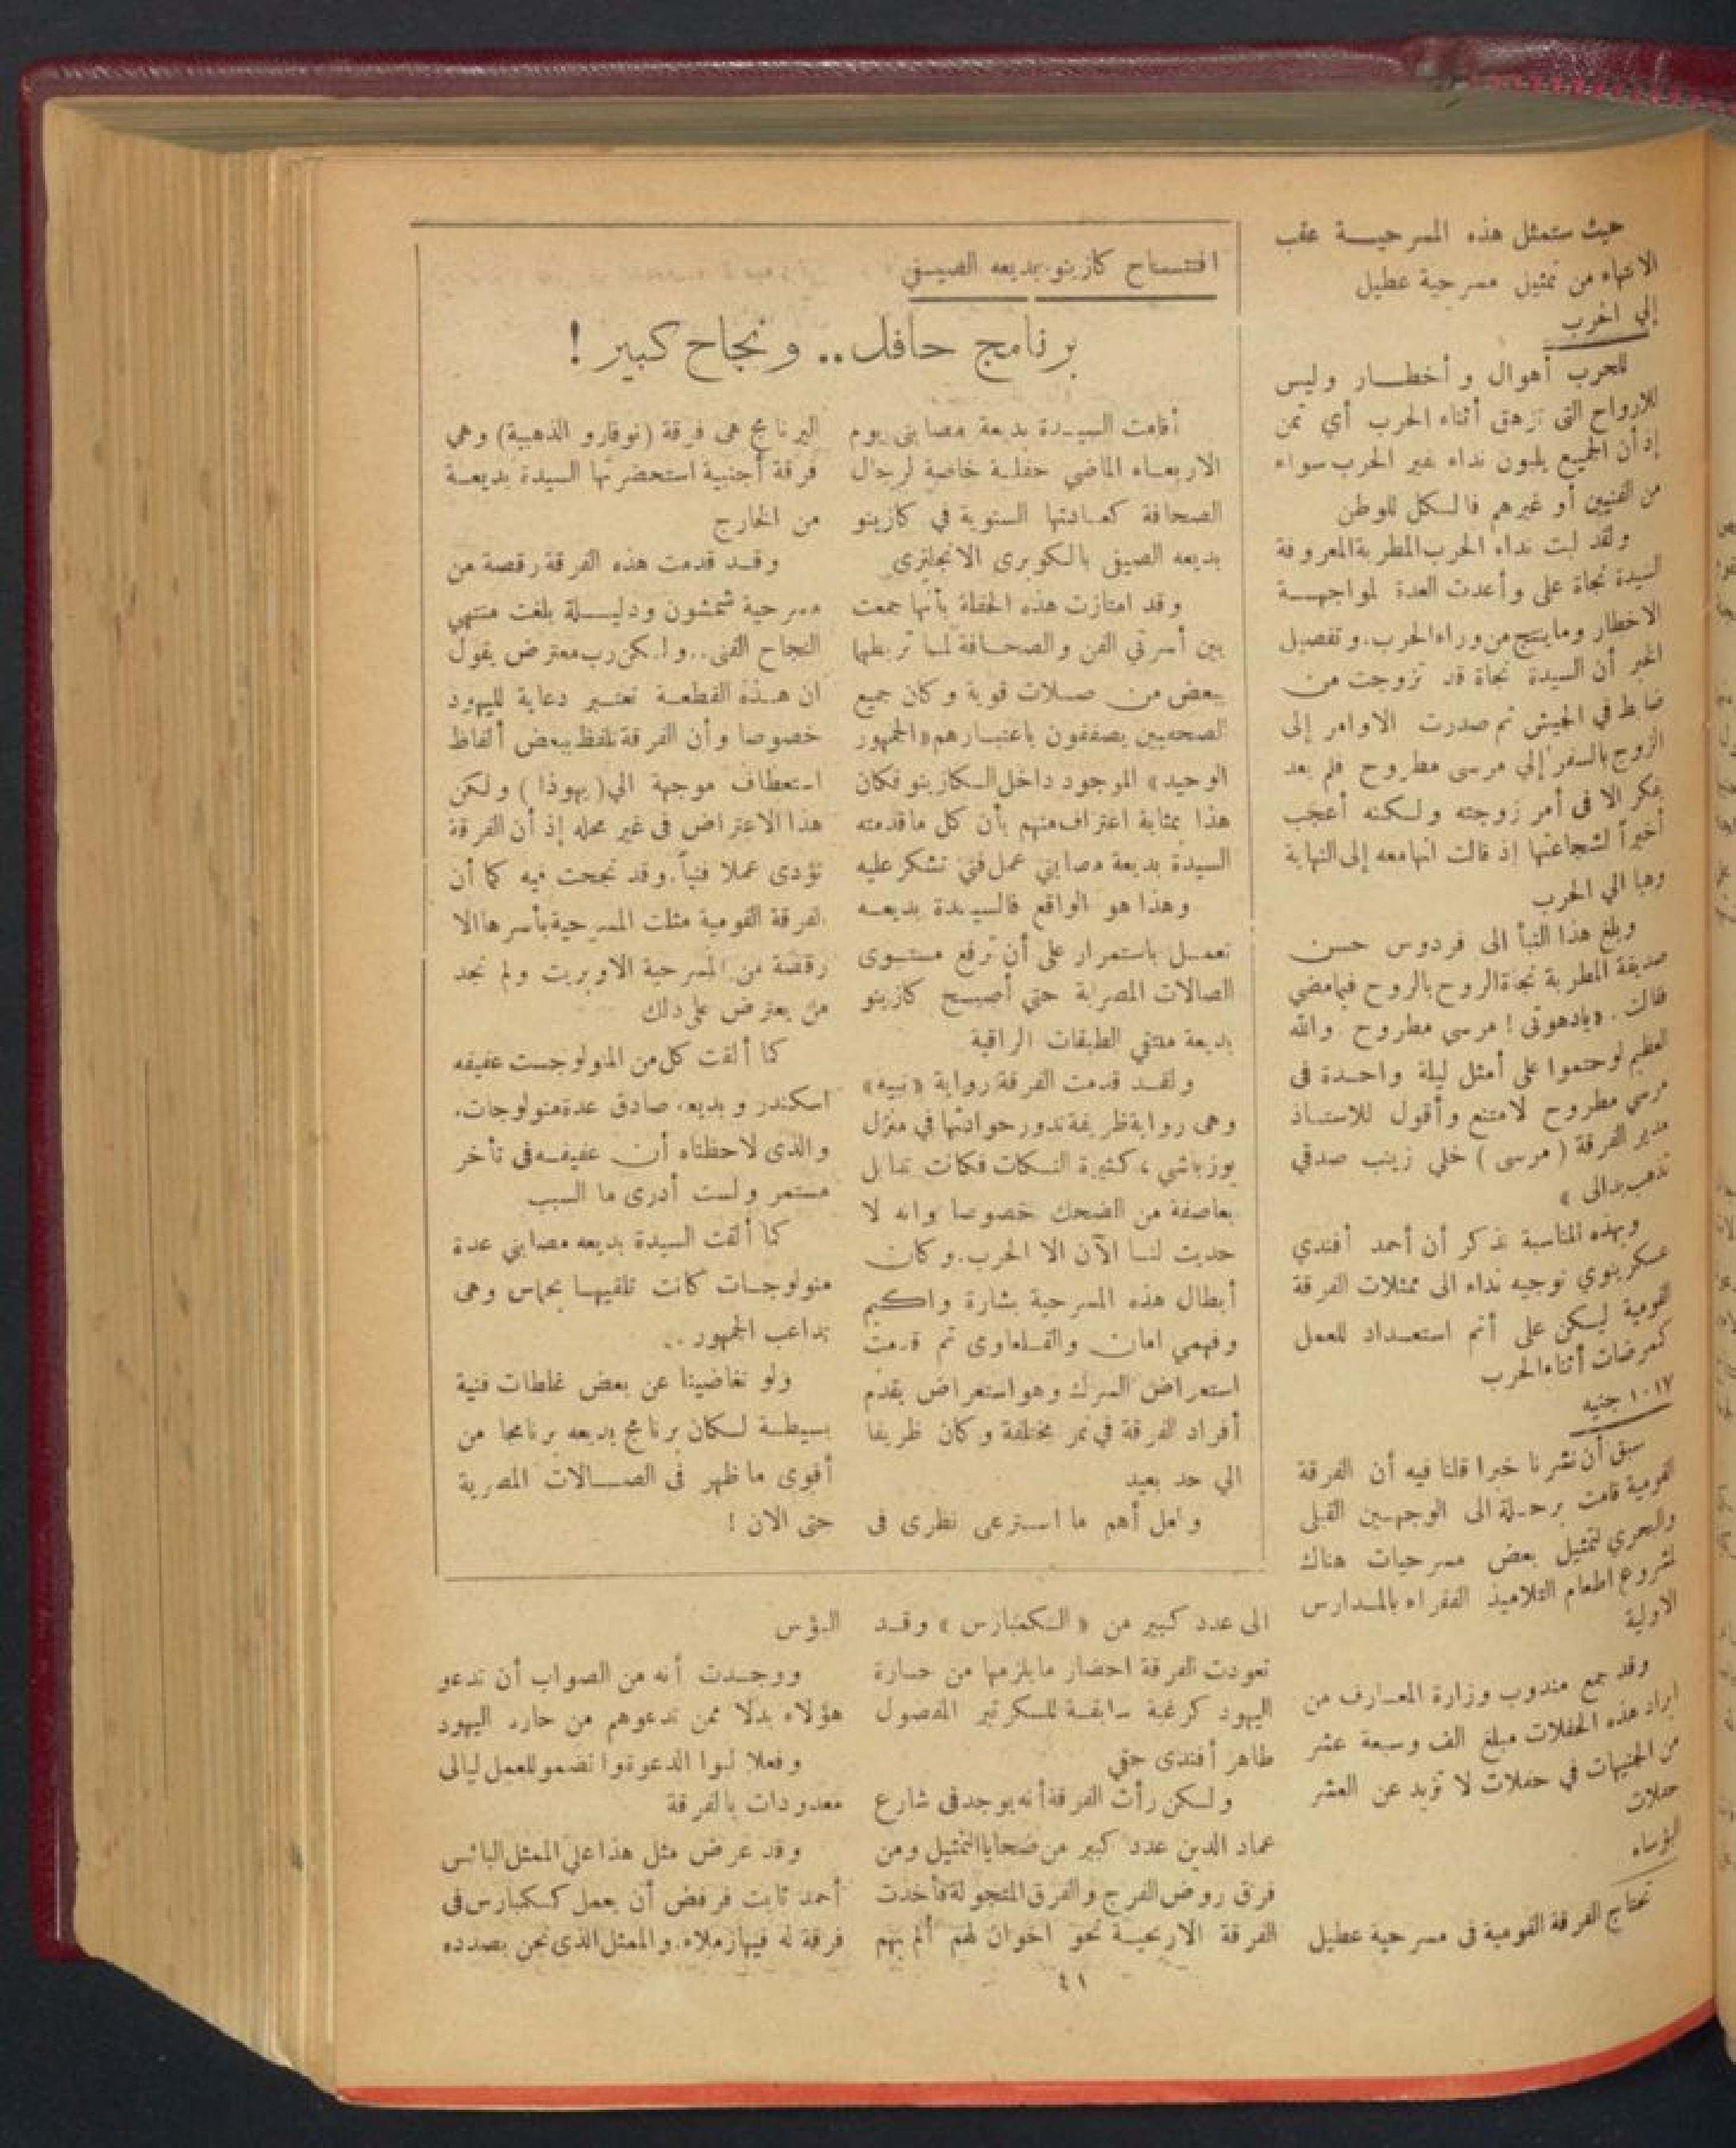 حيث ستمثل هذه المسرحيــة عقب
الانتهاء من تمثيل مسرحية عطيل
إلى الحرب
للحرب أهوال و أخطــار وليس
للارواح التى تزهق أثناء الحرب أي ثمن
إذ أن الجميع يلبون نداء غير الحرب سواء
من الفنيين أو غيرهم فالكل للوطن
ولقد لبت نداء الحرب المطربة المعروفة
السيدة نجاة على وأعدت العدة لمواجهــة
الاخطار وما ينتج من وراء الحرب. وتفصيل
الخبر أن السيدة نجاة قد تزوجت من
ضابط في الجيش ثم صدرت الاوامر إلى
الزوج بالسفر إلي مرسى مطروح فلم يعد
يفكر الا فى أمر زوجته ولكنه أعجب
أخيراً لشجاعتها إذ قالت انها معه إلى النهاية
وهيا الي الحرب
وبلغ هذا النبأ الى فردوس حسن
صديقة المطربة نجاة الروح بالروح فيما مضي
فقالت . «يادهوتى ! مرسي مطروح . والله
العظيم لو حتموا على أمثل ليلة واحــدة فى
مرسي مطروح لامتنع وأقول للاستــاذ
مدير الفرقة ( مرسى ) خلي زينب صدقي
تذهب بدالى »
وبهذه المناسبة نذكر أن أحمد أفندي
عسكر ينوي توجيه نداء الى ممثلات الفرقة
القومية ليكن على أتم استعــداد للعمل
كممرضات أثناء الحرب
١٠١٧ جنيه
سبق أن نشرنا خبرا قلنا فيه أن الفرقة
القومية قامت برحــلة الى الوجهــين القبلى
والبحري لتمثيل بعض مسرحيات هناك
لمشروع اطعام التلاميذ الفقراء بالمــدارس
الاولية
وقد جمع مندوب وزارة المعــارف من
ايراد هذه الحفلات مبلغ الف وسبعة عشر
من الجنيهات في حفلات لا تزيد عن العشر
حفلات
البؤساء
تحتاج الفرقة القومية فى مسرحية عطيل
افتتــاح كازينو بديعه الصيــفي
برنامج حافل .. ونجاح كبير !
أقامت السيــدة بديعة مصابنى يوم
الاربعــاء الماضي حفلــة خاصة لرجال
الصحافة كعــادتها السنوية في كازينو
بديعه الصيفى بالكوبرى الانجلنزى
وقد امتازت هذه الحفلة بأنها جمعت
بين أسرتي الفن والصحــافة لمــا تربطهما
ببعض من صــلات قوية وكان جميع
الصحفيين يصفقون باعتبــارهم « الجمهور
الوحيد » الموجود داخل الــكازينو فكان
هذا بمثابة اعتراف منهم بأن كل ما قدمته
السيدة بديعة مصابني عمل فني تشكر عليه
وهذا هو الواقع فالسيــدة بديعــه
تعمــل باستمرار على أن ترفع مستــوى
الصالات المصرية حتي أصبــح كازينو
بديعة ملتقي الطبقات الراقية
ولقــد قدمت الفرقة رواية « نبيه »
وهى رواية ظريفة تدور حوادثها في منزل
يوزباشي ، كثيرة النــكات فكانت تقابل
بعاصفة من الضحك خصوصا وانه لا
حديث لنــا الآن الا الحرب. وكان
أبطال هذه المسرحية بشارة واكيم
وفهمي امان والقــلعاوى ثم قدمت
استعراض السرك وهو استعراض يقدم
أفراد الفرقة في نمر مختلفة وكان ظريفا
الي حد بعيد
ولعل أهم ما استــرعى نظرى فى
البرنامج هى فرقة (نوفارو الذهبية) وهي
فرقة أجنبية استحضرتها السيدة بديعــة
من الخارج
وقــد قدمت هذه الفرقة رقصة من
مسرحية شمشون ودليــلة بلغت منتهي
النجاح الفنى .. ولكن رب معترض يقول
ان هــذه القطعــة تعتــبر دعاية لليهود
خصوصا وأن الفرقة تلفظ ببعض ألفاظ
استعطاف موجهة الي ( يهوذا ) ولكن
هذا الاعتراض فى غير محله إذ أن الفرقة
تؤدى عملا فنياً. وقد نجحت فيه كما أن
الفرقة القومية مثلت المسرحية بأسرها الا
رقصة من المسرحية الاوبريت ولم نجد
من يعترض على ذلك
كما ألقت كل من المنولوجست عفيفه
اسكندر و بديعه صادق عدة منولوجات.
والذى لاحظناه أن عفيفــه فى تأخر
مستمر ولست أدرى ما السبب
كما ألقت السيدة بديعه مصابني عدة
منولوجــات كانت تلقيهــا بحماس وهى
تداعب الجمهور ..
ولو تغاضينا عن بعض غلطات فنية
بسيطــة لــكان برنامج بديعه برنامجا من
أقوى ما ظهر فى الصــالات المصرية
حتى الان !
الى عدد كبير من « الــكمبارس » وقــد
تعودت الفرقة احضار ما يلزمها من حــارة
اليهود كرغبة سابقــة للسكرتير المفصول
طاهر أفندى حقي
ولــكن رأت الفرقة أنه يوجد فى شارع
عماد الدين عدد كبير من ضحايا التمثيل ومن
فرق روض الفرج والفرق المتجولة فأخذت
الفرقة الاريحيــة نحو اخوان لهم ألم بهم
البؤس
ووجــدت أنه من الصواب أن تدعو
هؤلاء بدلا ممن تدعوهم من حارد اليهود
وفعلا لبوا الدعوة وانضمو للعمل ليالى
معدودات بالفرقة
وقد عرض مثل هذا على الممثل البائس
أحمد ثابت فرفض أن يعمل كــكمبارس فى
فرقة له فيها زملاء. والممثل الذى نحن بصدده
٤١